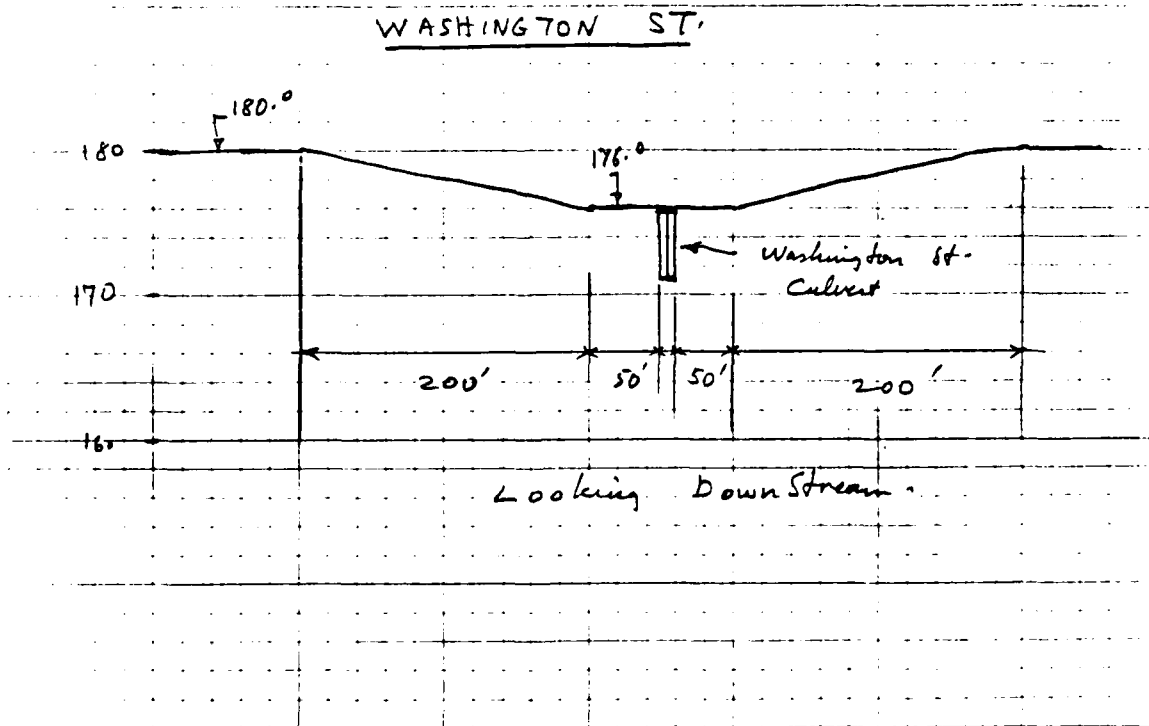 WASHINGTON ST.
180.0
180
176.0
Washington St.
Culvert
170
200' 50' 50' 200'
160
Looking Down Stream.